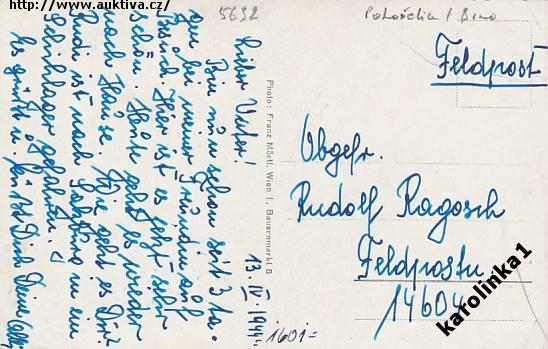 http://www.auktiva.cz/
5632
Pohořelice / Brno
Feldpost
Obgefr.
Rudolf Ragosch
Feldpostn.
14604
karolinka1
Photo: Franz Mörtl, Wien 1, Bauernmarkt 8
13. IV. 1944.
1601=
Lieber Vater!
Bin nun schon seit 3 Ta-
gen bei meiner Freundin auf
Besuch. Hier ist es jetzt sehr
schön. Heute geht es wieder
nach Hause. Wie geht es Dir?
Rudi ist nach in ein
Schihlager gefahren.
Es grüßt u. küsst Dich Deine